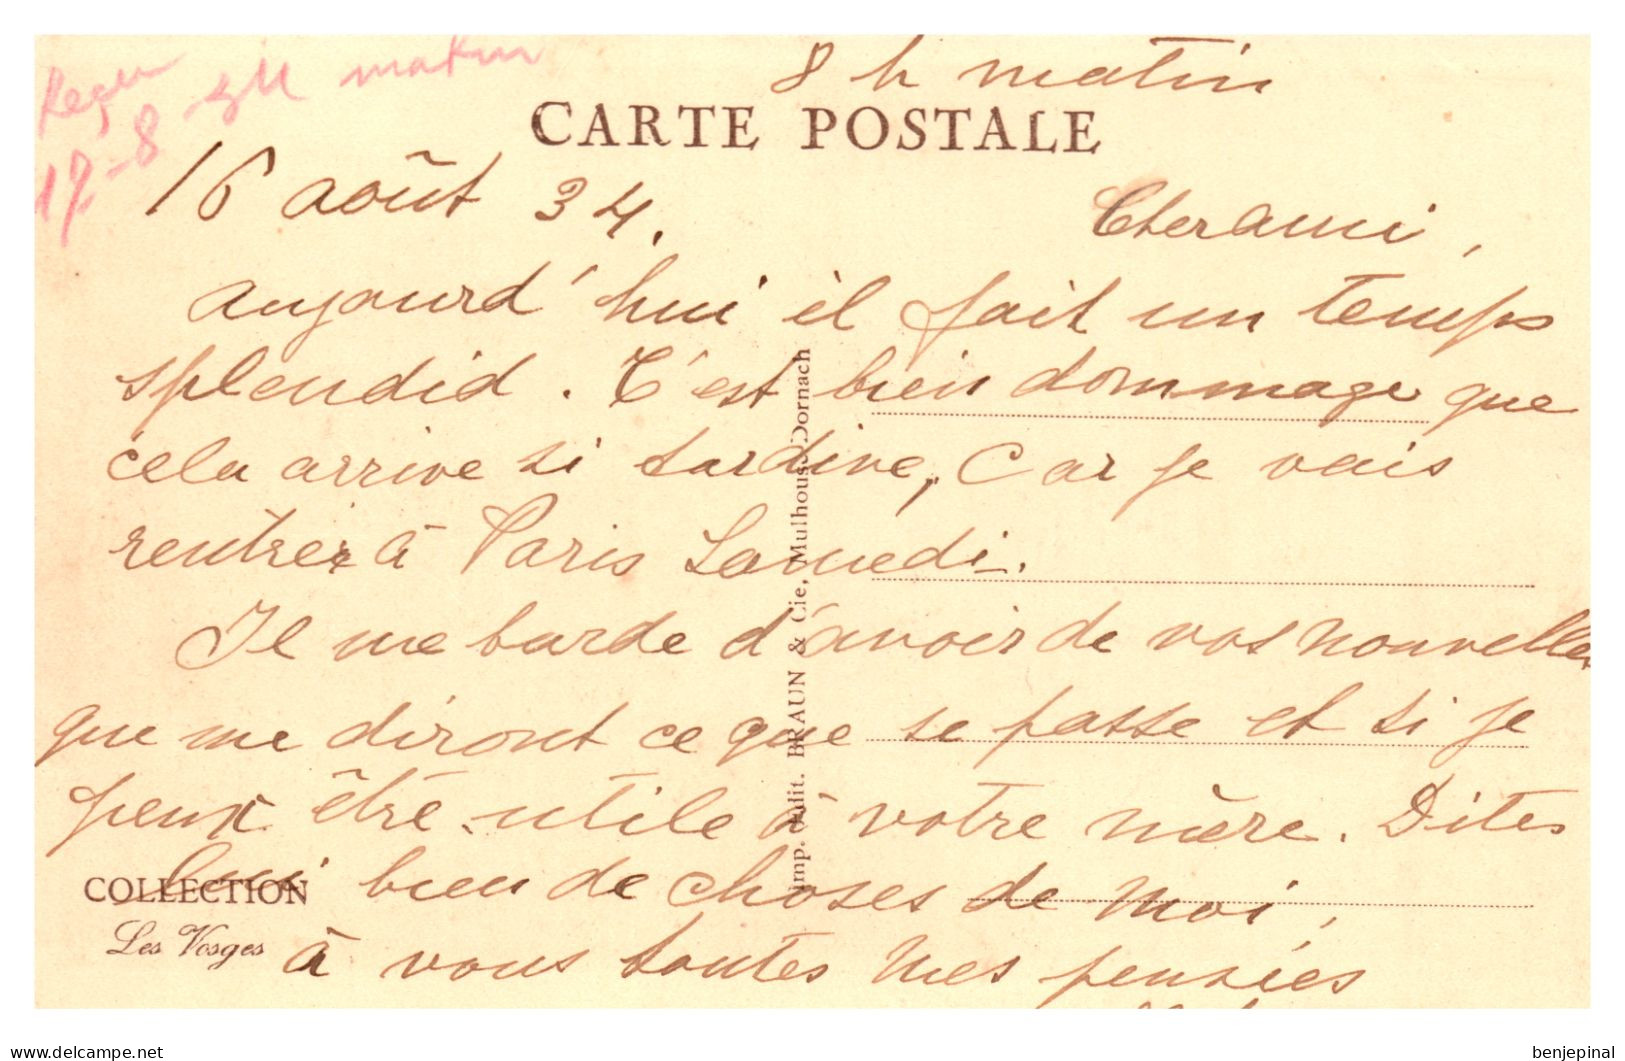 Reçu
17-8-34 matin
8 h matin
CARTE POSTALE
16 août 34.
Cher ami,
aujourd'hui il fait un temps
splendid. C'est bien dommage que
cela arrive si tardive, Car je vais
rentrer à Paris Samedi.
Il me tarde d'avoir de vos nouvelles
que me diront ce que se passe et si je
peux être utile à votre mère. Dites
lui bien de choses de moi,
à vous toutes mes pensées
COLLECTION
Les Vosges
Imp. édit. BRAUN & Cie, Mulhouse-Dornach
www.delcampe.net
benjepinal